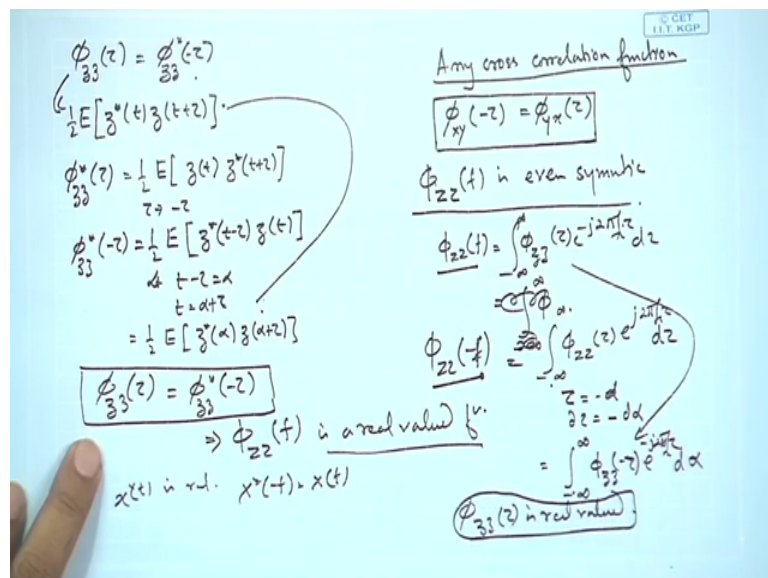 © CET
I.I.T. KGP
ϕ_zz(τ) = ϕ*_zz(-τ).
½E[z*(t) z(t+τ)].
ϕ*_zz(τ) = ½ E[z(t) z*(t+τ)]
τ → -τ
ϕ*_zz(-τ) = ½ E[z*(t-τ) z(t)]
t-τ = α
t = α+τ
= ½ E[z*(α) z(α+τ)]
ϕ_zz(τ) = ϕ*_zz(-τ)
⇒ Φ_zz(f) is a real value fⁿ.
x(t) is real. X*(-f) = X(f)
Any cross correlation function
ϕ_xy(-τ) = ϕ_yx(τ)
Φ_zz(f) is even symmetric
Φ_zz(f) = ∫_{-∞}^{∞} ϕ_zz(τ) e^{-j2πfτ} dτ
Φ_zz(-f) = ∫_{-∞}^{∞} ϕ_zz(τ) e^{j2πfτ} dτ
τ = -α
∂τ = -dα
= ∫_{-∞}^{∞} ϕ_zz(-τ) e^{-j2πfτ} dα
ϕ_zz(τ) is real value.